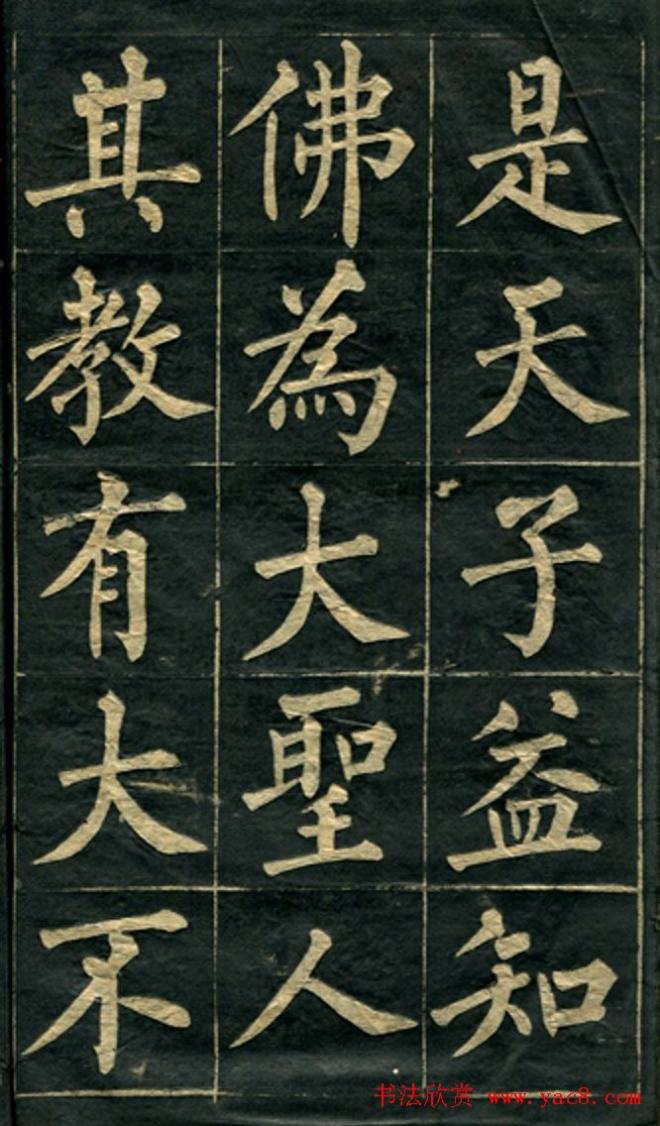 是天子益知
佛為大聖人
其教有大不
书法欣赏 www.yac8.com